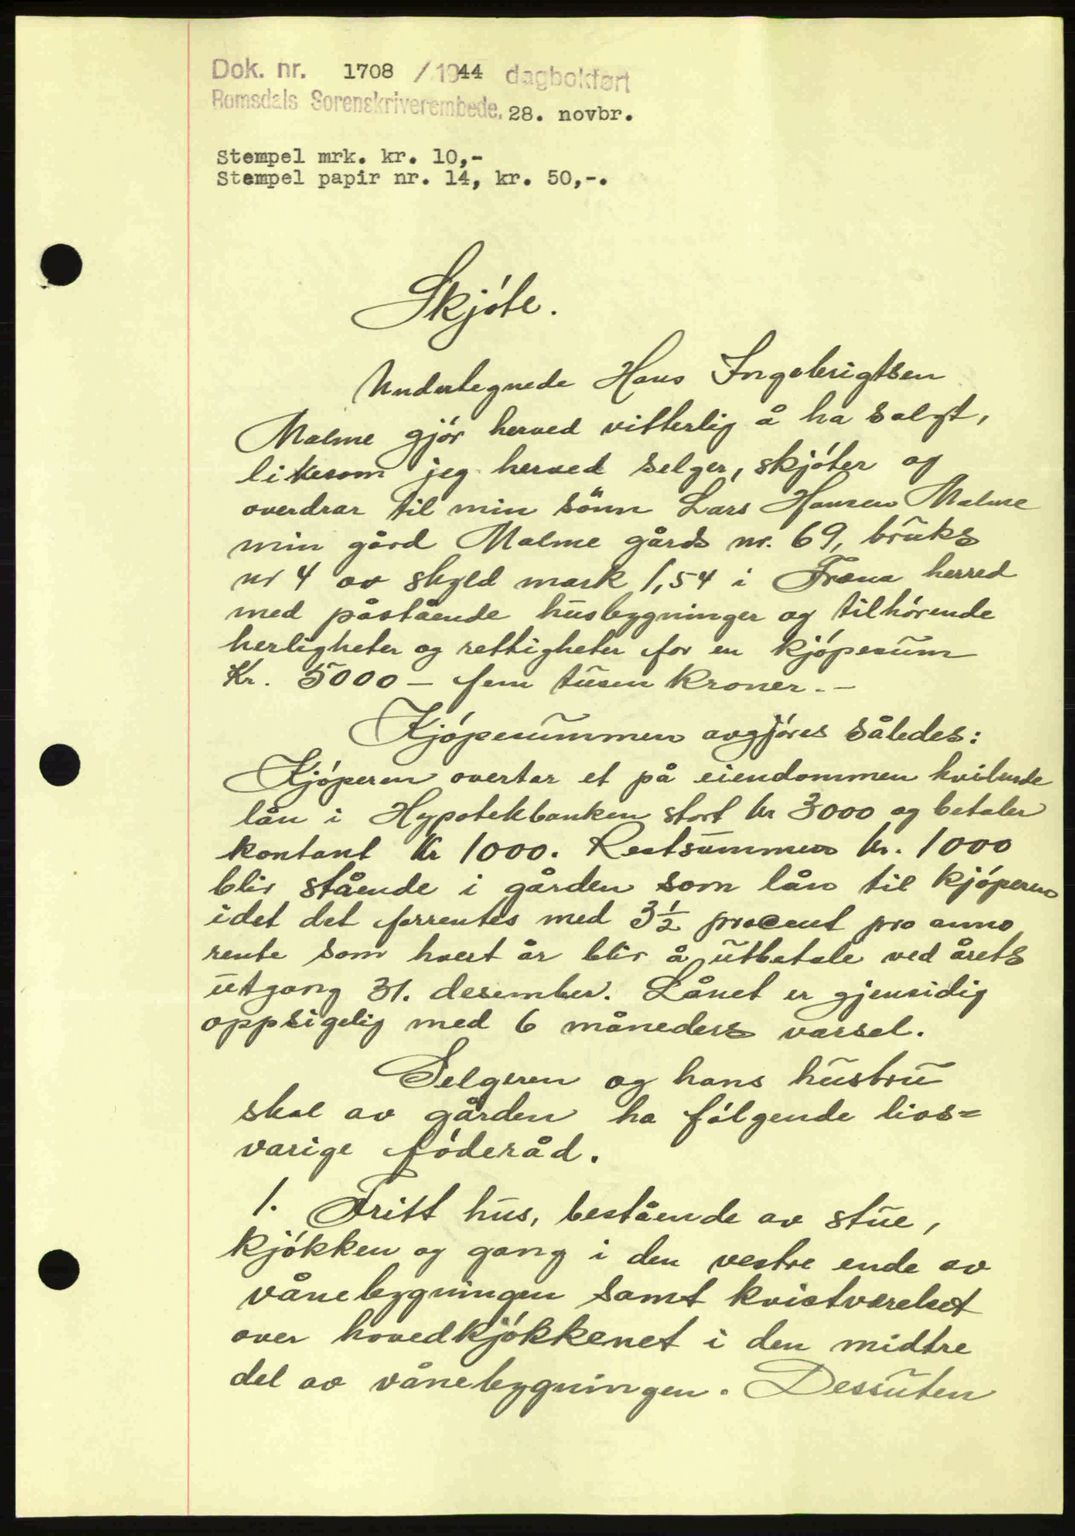 Dok. nr. 1708 / 1944 dagbokført
Romsdals Sorenskriverembede. 28. novbr.
Stempel mrk. kr. 10,-
Stempel papir nr. 14, kr. 50,-.
Skjóte.
Undertegnede Hans Ingebrigtsen
Malme gjór herved vitterlig å ha solgt,
likesom jeg herved selger, skjóter og
overdrar til min sönn Lars Hansen Malme
min gård Malme gårds nr. 69, bruks
nr 4 av skyld mark 1,54 i Fræna herred
med påstående husbygninger og tilhórende
herligheter og rettigheter for en kjópesum
Kr. 5000 - fem tusen kroner. -
Kjópesummen avgjóres således:
Kjóperen overtar et på eiendommen hvilende
lån i Hypotekbanken stort kr 3000 og betaler
kontant kr 1000. Restsummen kr. 1000
blir stående i gården som lån til kjóperen
idet det forrentes med 3 1/2 procent pro anno
rente som hvert år blir å utbetale ved årets
utgang 31. desember. Lånet er gjensidig
oppsigelig med 6 måneders varsel.
Selgeren og hans hustru
skal av gården ha fólgende livs=
varige fóderåd.
1. Fritt hus, bestående av stue,
kjókken og gang i den vestre ende av
vånebygningen samt kvistværelset
over hovedkjókkenet i den midtre
del av vånebygningen. Dessuten